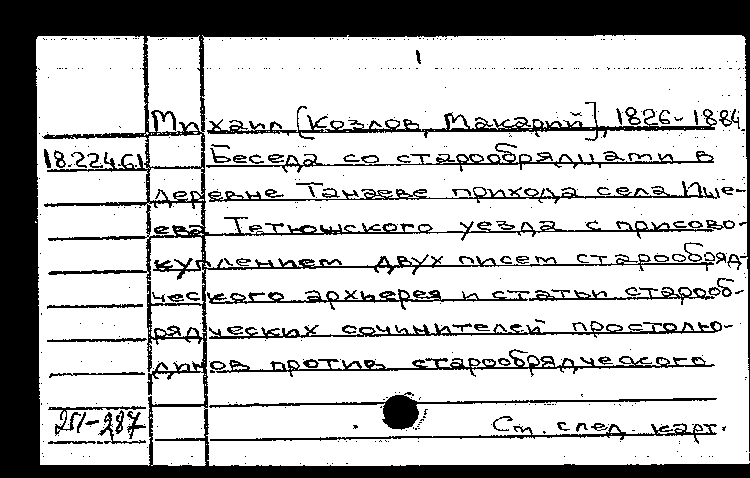 1
Михаил [Козлов, Макарий], 1826-1884
18.224.6.1 Беседа со старообрядцами в
деревне Танаеве прихода села Ише-
ева Тетюшского уезда с присово-
куплением двух писем старообряд-
ческого архиерея и статьи старооб-
рядческих сочинителей простолю-
динов против старообрядческого
251-287 См. след. карт.